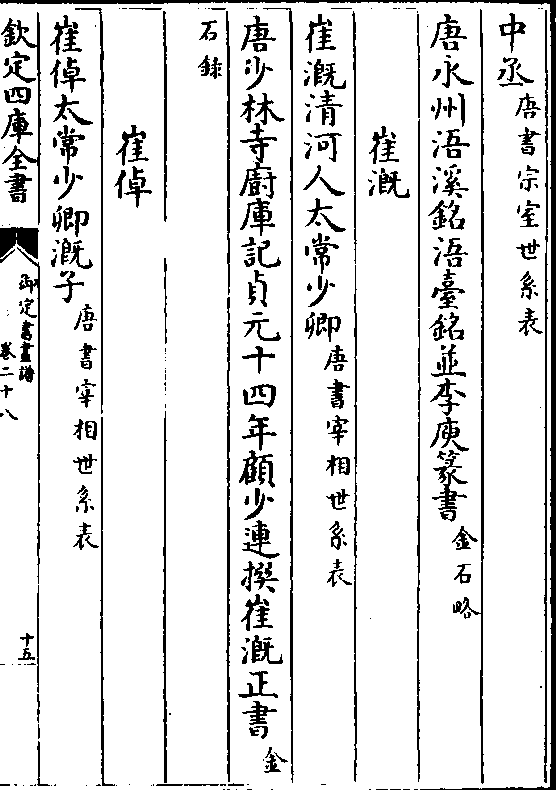 中丞唐書宗室世系表
唐永州浯溪銘浯臺銘並李庾篆書金石略
崔溉
崔溉清河人太常少卿唐書宰相世系表
唐少林寺廚庫記貞元十四年顧少連撰崔溉正書金
石錄
崔倬
崔倬太常少卿溉子唐書宰相世系表
欽定四庫全書
御定書畫譜
卷二十八
十五